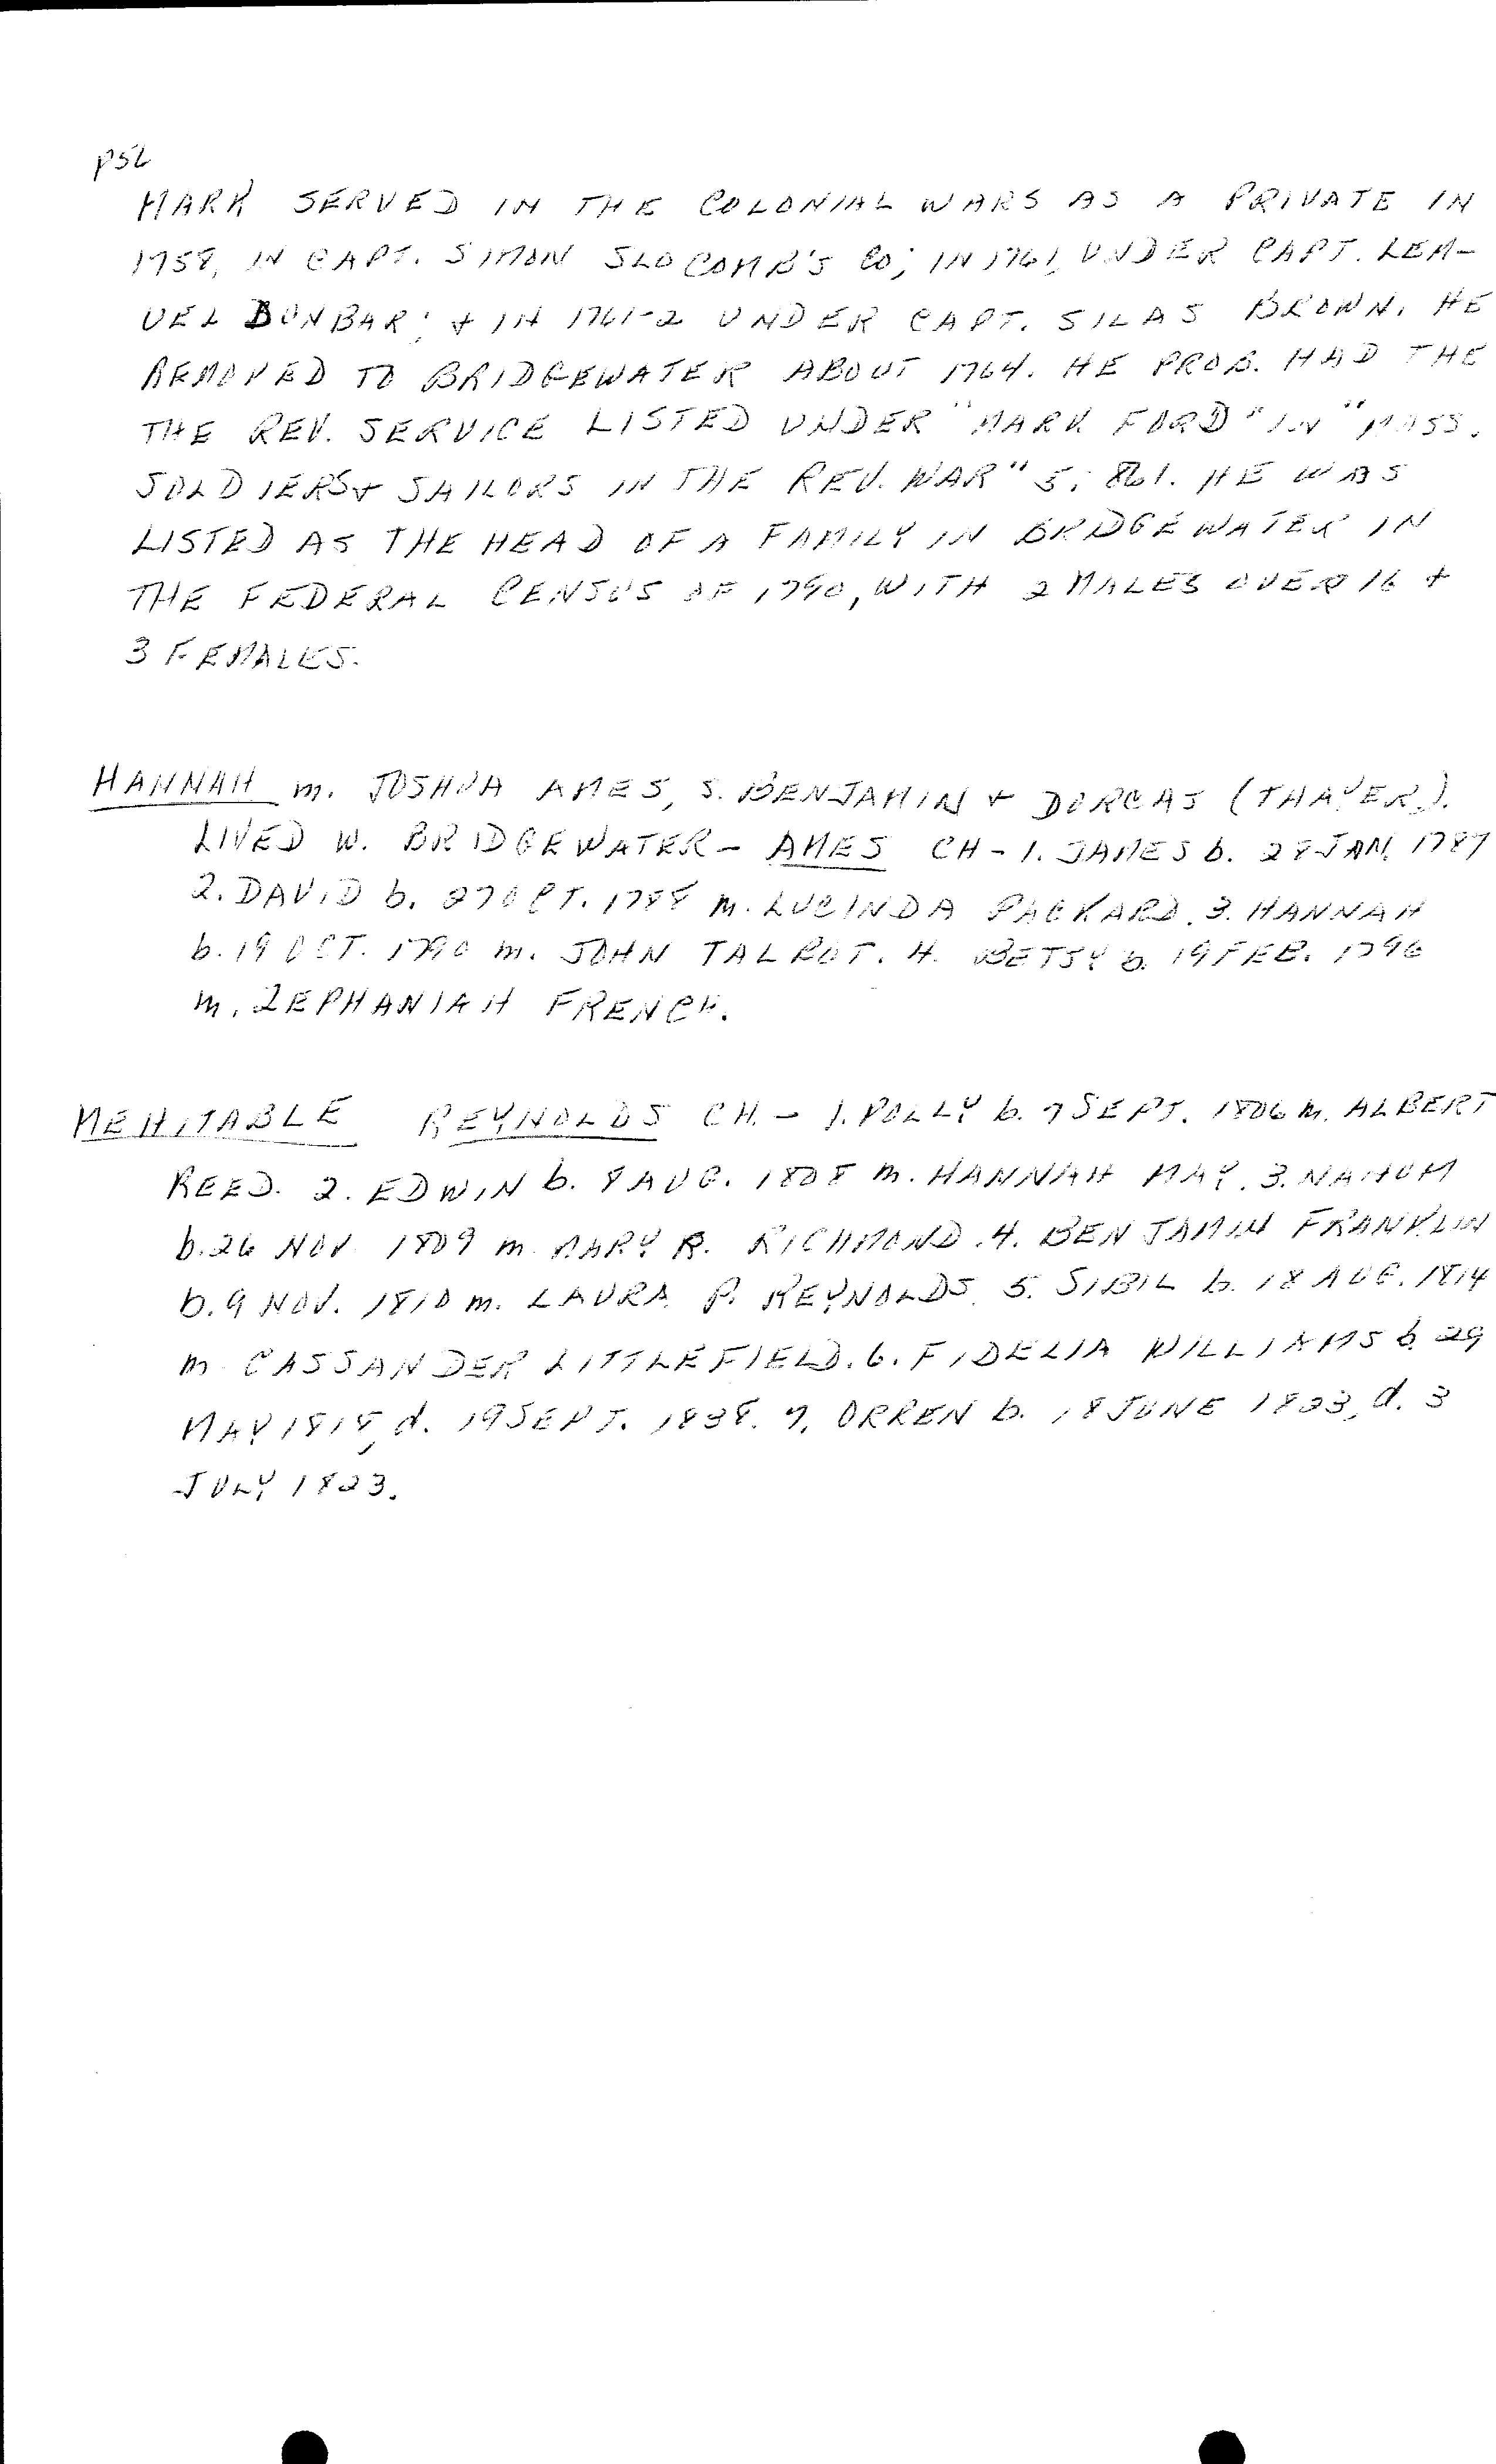 p52
MARK SERVED IN THE COLONIAL WARS AS A PRIVATE IN
1758, IN CAPT. SIMON SLOCOMB'S CO; IN 1761, UNDER CAPT. LEM-
UEL DUNBAR; + IN 1761-2 UNDER CAPT. SILAS BROWN. HE
REMOVED TO BRIDGEWATER ABOUT 1764. HE PROB. HAD THE
THE REV. SERVICE LISTED UNDER "MARK FORD" IN "MASS.
SOLDIERS + SAILORS IN THE REV. WAR" 5; 861. HE WAS
LISTED AS THE HEAD OF A FAMILY IN BRDGEWATER IN
THE FEDERAL CENSUS OF 1790, WITH 2 MALES OVER 16 +
3 FEMALES.
HANNAH m. JOSHUA AMES, S. BENJAMIN + DORCAS (THAYER).
LIVED W. BRIDGEWATER - AMES CH - 1. JAMES b. 28 JAN. 1787
2. DAVID b. 27 OCT. 1788 m. LUCINDA PACKARD. 3. HANNAH
b. 19 OCT. 1790 m. JOHN TALBOT. 4. BETSY b. 19 FEB. 1796
m. ZEPHANIAH FRENCH.
MEHITABLE REYNOLDS CH. - 1. POLLY b. 7 SEPT. 1806 m. ALBERT
REED. 2. EDWIN b. 8 AUG. 1808 m. HANNAH MAY. 3. NAHUM
b. 26 NOV. 1809 m. MARY R. RICHMOND. 4. BENJAMIN FRANKLIN
b. 9 NOV. 1810 m. LAURA P. REYNOLDS. 5. SIBIL b. 18 AUG. 1814
m. CASSANDER LITTLEFIELD. 6. FIDELIA WILLIAMS b. 29
MAY 1818, d. 19 SEPT. 1838. 7. ORREN b. 18 JUNE 1823, d. 3
JULY 1823.